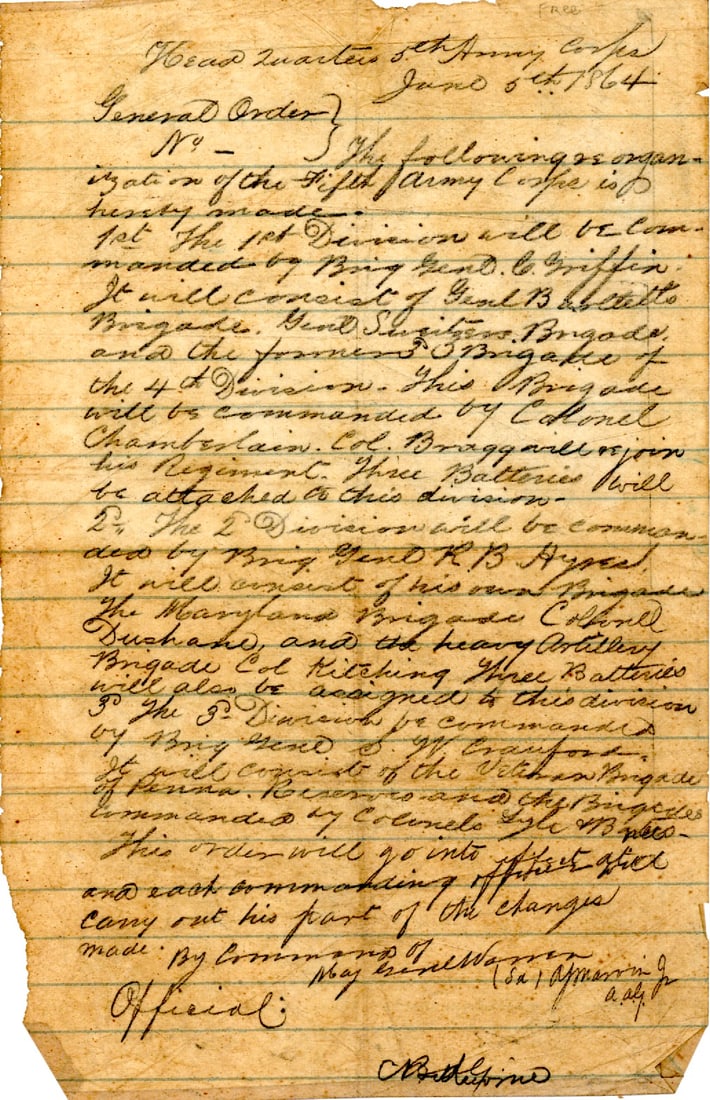 FREE
Head Quarters 5th Army Corps
June 5th 1864
General Order }
No — The following reorgan-
ization of the Fifth Army Corps is
hereby made.
1st The 1st Division will be com-
manded by Brig Genl. C. Griffin.
It will consist of Genl Bartletts
Brigade. Genl Sweitzers Brigade.
and the former 3d Brigade of
the 4th Division. This Brigade
will be commanded by Colonel
Chamberlain. Col. Bragg will rejoin
his Regiment. Three Batteries will
be attached to this division—
2d, The 2d Division will be comman-
ded by Brig Genl R B Ayres.
It will consist of his own Brigade
The Maryland Brigade Colonel
Dushane, and the heavy Artillery
Brigade Col Kitching Three Batteries
will also be assigned to this division
3d The 3d Division be commanded
by Brig Genl S. W Crawford.
It will consist of the Veteran Brigade
of Penna. Reserves and the Brigades
commanded by Colonels Lyle &
This order will go into effect
and each commanding officer will
carry out his part of the changes
made. By Command of
Maj Genl Warren
(Sd) Marvin Jr
a.a.g.
Official: